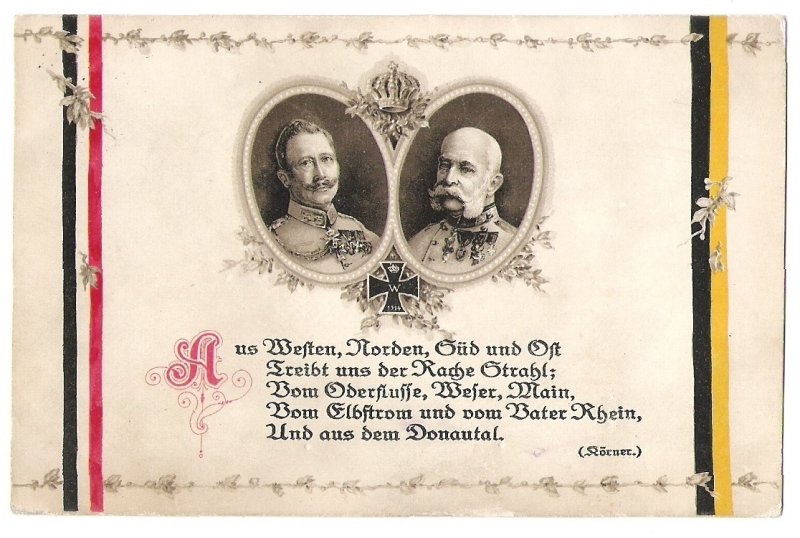 W
1914
Aus Westen, Norden, Süd und Ost
Treibt uns der Rache Strahl;
Vom Oderflusse, Weser, Main,
Vom Elbstrom und vom Vater Rhein,
Und aus dem Donautal.
(Körner.)